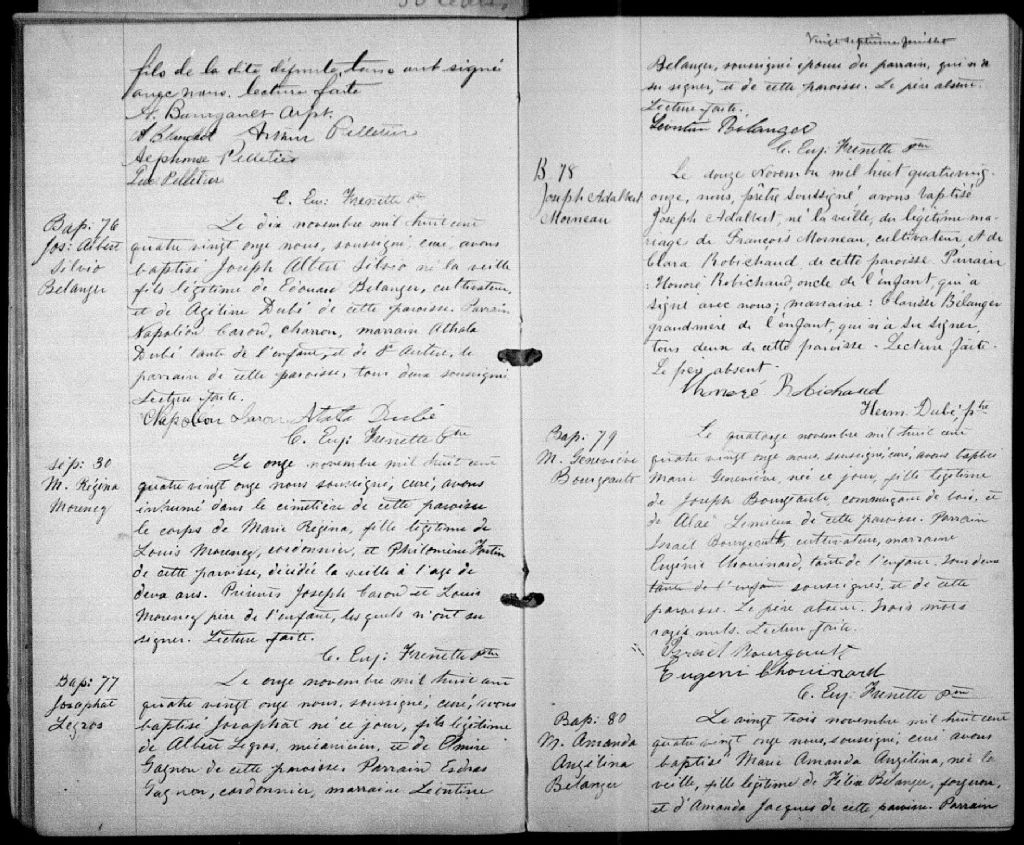 fils de la dite défunte, tous ont signé
avec nous. lecture faite
A. Blanchet Arthur Pelletier
Alphonse Pelletier
Luc Pelletier
C. Euj. Frenette Ptre
Bap: 76
Jos: Albert
Silvio
Bélanger
Le dix novembre mil huit cent
quatre vingt onze nous, soussigné, curé, avons
baptisé Joseph Albert Silvio né la veille
fils légitime de Edouard Bélanger, cultivateur,
et de Azéline Dubé de cette paroisse. Parrain
Napoléon Caron, charron, marraine Athala
Dubé tante de l'enfant, et de St Aubert, le
parrain de cette paroisse, tous deux soussignés
Lecture faite.
Napoléon Caron Atala Dubé
C. Euj: Frenette Ptre
Sép: 30
M. Régina
Morency
Le onze novembre mil huit cent
quatre vingt onze nous soussigné, curé, avons
inhumé dans le cimetière de cette paroisse
le corps de Marie Régina, fille légitime de
Louis Morency, cordonnier, et Philomène Fortin
de cette paroisse, décédée la veille à l'age de
deux ans. Présents Joseph Caron et Louis
Morency père de l'enfant, lesquels n'ont su
signer. Lecture faite.
C. Euj: Frenette Ptre
Bap: 77
Josaphat
Legros
Le onze novembre mil huit cent
quatre vingt onze nous, soussigné, curé, avons
baptisé Josaphat né ce jour, fils légitime
de Albert Legros, mécanicien, et de
Gagnon de cette paroisse. Parrain Esdras
Gagnon, cordonnier, marraine Léontine
Vingt septième feuillet
Bélanger, soussigné épouse du parrain, qui n'a
su signer, et de cette paroisse. Le père absent.
Lecture faite.
Léontine Bélanger
C. Euj. Frenette Ptre
B. 78
Joseph Adalbert
Morneau
Le douze Novembre mil huit quatrevingt-
onze, nous, prêtre soussigné, avons baptisé
Joseph Adalbert, né la veille, du légitime ma-
riage de François Morneau, cultivateur, et de
Clara Robichaud, de cette paroisse. Parrain
: Honoré Robichaud, oncle de l'enfant, qui a
signé avec nous; marraine: Bélanger
grandmère de l'enfant, qui n'a su signer,
tous deux de cette paroisse - Lecture faite.
Le père absent.
Honoré Robichaud
Herm. Dubé, ptre
Bap. 79
M. Geneviève
Bourgeault
Le quatorze novembre mil huit cent
quatre vingt onze nous, soussigné, curé, avons baptisé
Marie Geneviève, née ce jour, fille légitime
de Joseph Bourgeault, commerçant de bois, et
de Lemieux de cette paroisse. Parrain
Israël Bourgeault, cultivateur, marraine
Eugénie Chouinard, tante de l'enfant. tous deux
tante de l'enfant soussignés, et de cette
paroisse. Le père absent. Trois mots
rayés nuls. Lecture faite.
Israel Bourgault
Eugeni Chouinard
C. Euj. Frenette Ptre
Bap: 80
M. Amanda
Angélina
Bélanger
Le vingt trois novembre mil huit cent
quatre vingt onze nous, soussigné, curé avons
baptisé Marie Amanda Angélina, née la
veille, fille légitime de Félix Bélanger, forgeron,
et d'Amanda Jacques de cette paroisse. Parrain